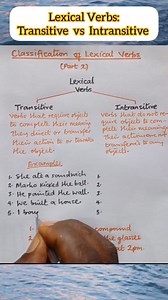 Lexical Verbs:
Transitive vs Intransitive
Classification of Lexical Verbs
(Part 2)
Lexical
Verbs
Transitive
Verbs that require objects
to complete their meaning
They direct or transfer
their action to or towards
the object.
Intransitive
Verbs that do not re-
quire objects to com-
plete their meaning
Their action is not
transferred to any
object
Examples:
1. She ate a sandwich
2. Marko kissed the ball.
3. He painted the wall.
4. We built a house
5. I buy
1.
2.
3.
4.
5.
1.
2.
3.
compound
the glasses
at 2pm